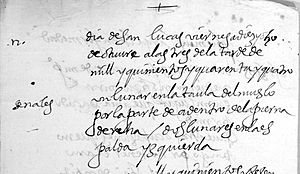 n. dia de san lucas viernes adiez y ocho
de otubre alas tres de la tarde de
mill y quinientos y quarenta y quatro
señales un lunar en la tabla del muslo
por la parte de adentro de la pierna
derecha / dos lunares en la es
palda yzquierda